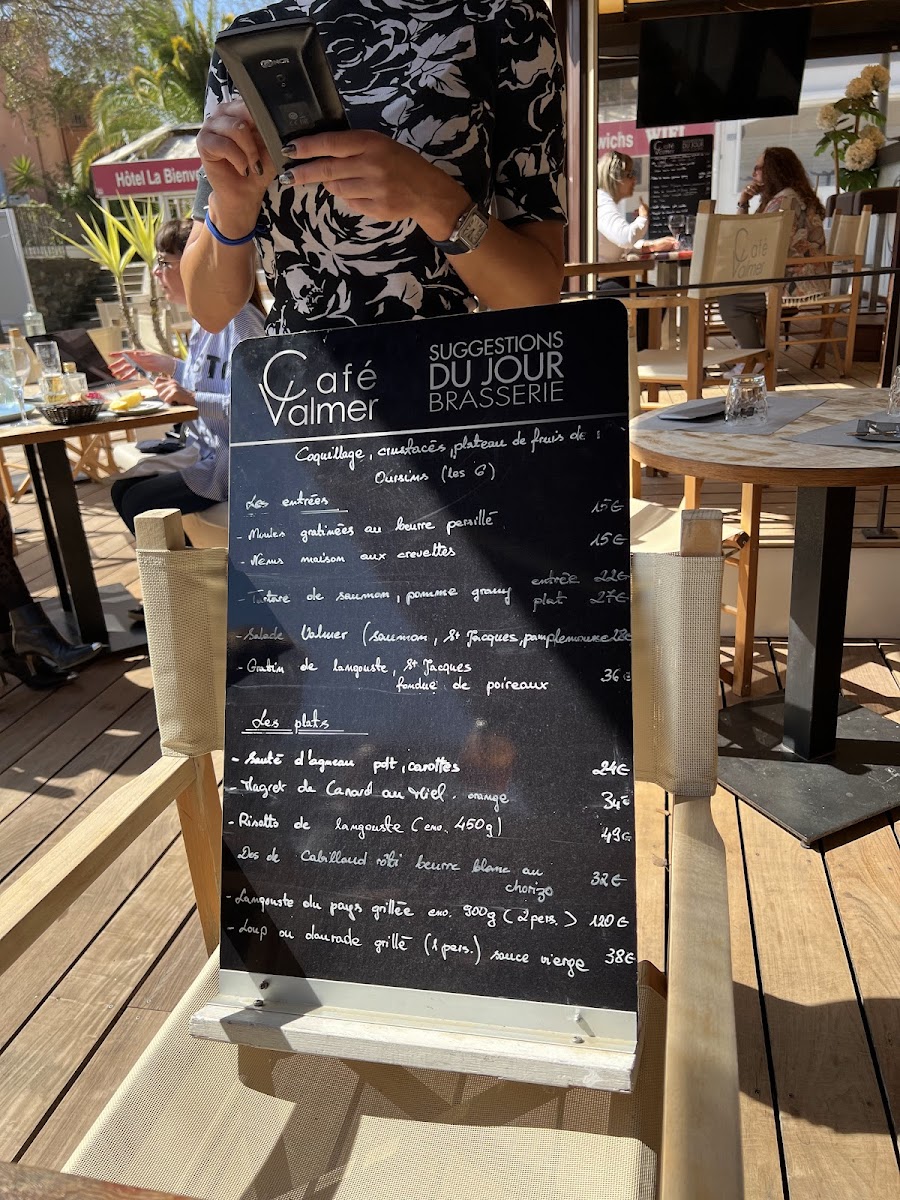 Hôtel La Bienve
wichs WIFI
Café
Valmer
DU JOUR
Café
Valmer
Café
Valmer
SUGGESTIONS
DU JOUR
BRASSERIE
Coquillage, crustacés, plateau de fruis de :
Oursins (les 6)
Les entrées
- Moules gratinées au beurre persillé 15€
- Nems maison aux crevettes 15€
- Tartare de saumon, pomme grany entrée 22€
plat 27€
- Salade Valmer (saumon, St Jacques, pamplemousse 28€
- Gratin de langouste, St Jacques
fondue de poireaux 36€
Les plats
- Sauté d'agneau pdt, carottes 24€
- Magret de Canard au Miel . orange 34€
- Risotto de langouste (env. 450g) 49€
- Dos de Cabillaud rôti beurre blanc au
chorizo 32€
- Langouste du pays grillée env. 900g (2 pers.) 120€
- Loup ou daurade grillé (1 pers.) sauce vierge 38€